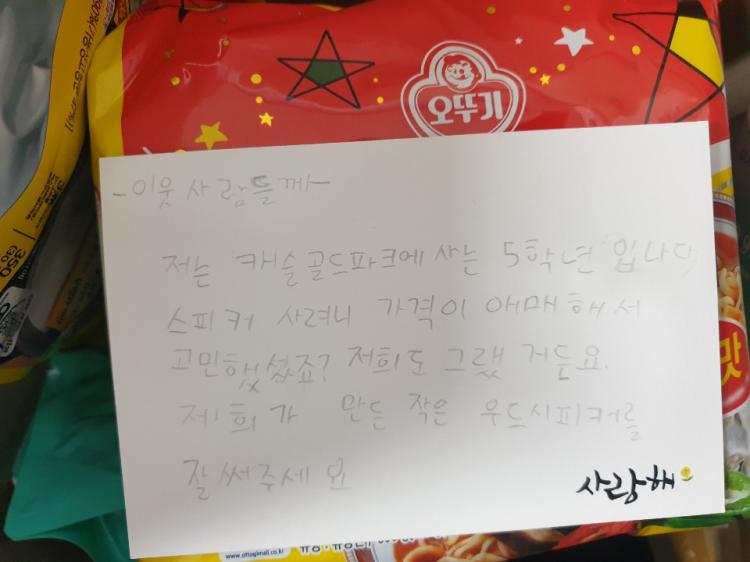 오뚜기
-이웃사람들께-
저는 캐슬골드파크에 사는 5학년 입니다
스피커 사려니 가격이 애매해서
고민했셨죠? 저희도 그랬 거든요.
제희가 만든 작은 우드시피커를
잘써주세요
사랑해
맛
350
www.ottogimall.co.kr